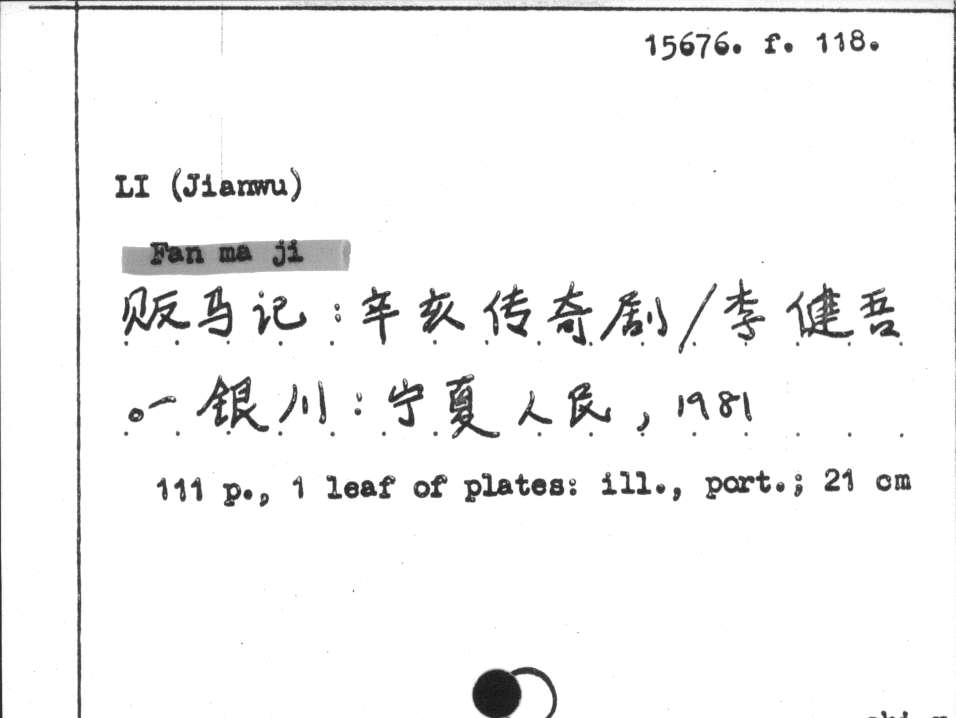 15676. f. 118.
LI (Jianwu)
Fan ma ji
贩马记:辛亥传奇剧/李健吾
。—银川:宁夏人民, 1981
111 p., 1 leaf of plates: ill., port.; 21 cm